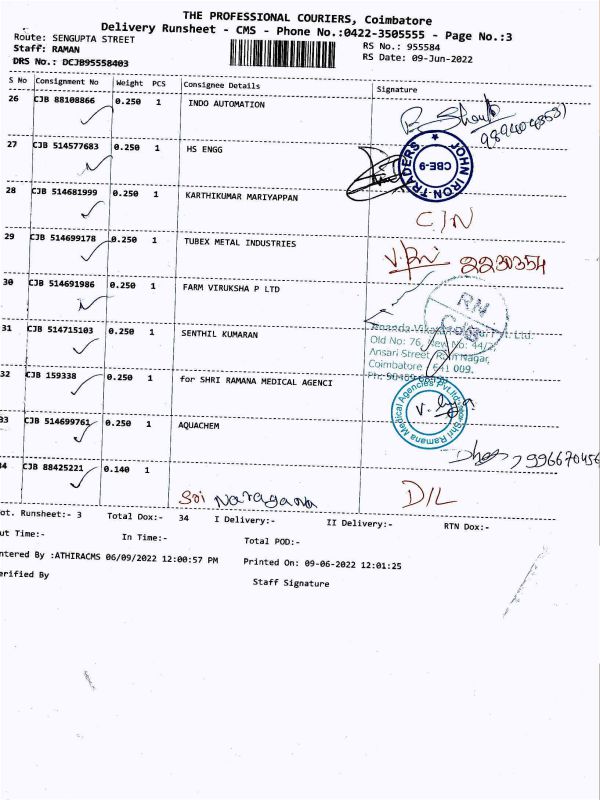 THE PROFESSIONAL COURIERS, Coimbatore
Delivery Runsheet - CMS - Phone No.:0422-3505555 - Page No.:3
Route: SENGUPTA STREET
RS No.: 955584
Staff: RAMAN
RS Date: 09-Jun-2022
DRS No.: DCJB95558403
S No Consignment No Weight PCS Consignee Details Signature
26 CJB 88108866 0.250 1 INDO AUTOMATION
27 CJB 514577683 0.250 1 HS ENGG
JOHN IRON TRADERS CBE-9
28 CJB 514681999 0.250 1 KARTHIKUMAR MARIYAPPAN
C/N
29 CJB 514699178 0.250 1 TUBEX METAL INDUSTRIES
2230354
30 CJB 514691986 0.250 1 FARM VIRUKSHA P LTD
RN
CJB
31 CJB 514715103 0.250 1 SENTHIL KUMARAN
Pvt. Ltd.
Old No: 76, New No: 44/2,
Ansari Street, Ram Nagar,
Coimbatore - 641 009.
32 CJB 159338 0.250 1 for SHRI RAMANA MEDICAL AGENCI
Shri Ramana Medical Agencies Pvt.ltd
33 CJB 514699761 0.250 1 AQUACHEM
34 CJB 88425221 0.140 1
Sri Naragana
D/L
ot. Runsheet:- 3 Total Dox:- 34 I Delivery:- II Delivery:- RTN Dox:-
ut Time:- In Time:- Total POD:-
ntered By :ATHIRACMS 06/09/2022 12:00:57 PM Printed On: 09-06-2022 12:01:25
erified By
Staff Signature